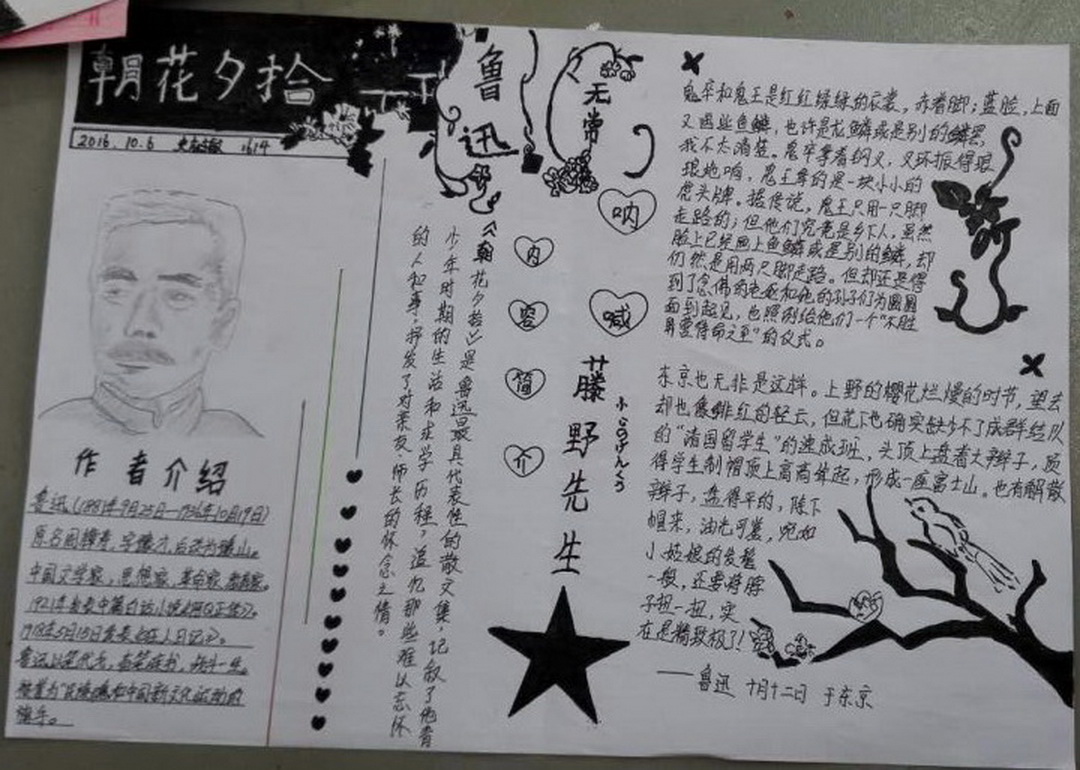 朝花夕拾
2016.10.6
1614
鲁迅
无常
呐喊
内容简介
藤野先生
作者介绍
鲁迅(1881年9月25日—1936年10月19日)
中国文学家，思想家，革命家
1918年5月15日发表《狂人日记》。
《朝花夕拾》是鲁迅最具代表性的散文集，记叙了他青
少年时期的生活和求学历程，追忆那些难以忘怀
的人和事，抒发了对亲友师长的怀念之情。
鬼卒和鬼王是红红绿绿的衣裳，赤着脚；蓝脸，上面
又画些鱼鳞，也许是龙鳞或是别的鳞罢，
我不大清楚。鬼卒拿着钢叉，叉环振得琅
琅地响，鬼王拿的是一块小小的
虎头牌。据传说，鬼王只用一只脚
走路的；但他们究竟是乡下人，虽然
脸上已经画上鱼鳞或是别的鳞，却
仍然是用两只脚走路。但却还是得
面到起见，也照例给他们一个“不胜
屏营待命之至”的仪式。
东京也无非是这样。上野的樱花烂熳的时节，望去
却也像绯红的轻云，但花下也确实缺少不了成群结队
的“清国留学生”的速成班，头顶上盘着大辫子，顶
得学生制帽顶上高高耸起，形成一座富士山。也有解散
辫子，盘得平的，除下
帽来，油光可鉴，宛如
小姑娘的发髻
一般，还要将脖
子扭一扭，实
在是精致极了！
——鲁迅 十月十二日 于东京